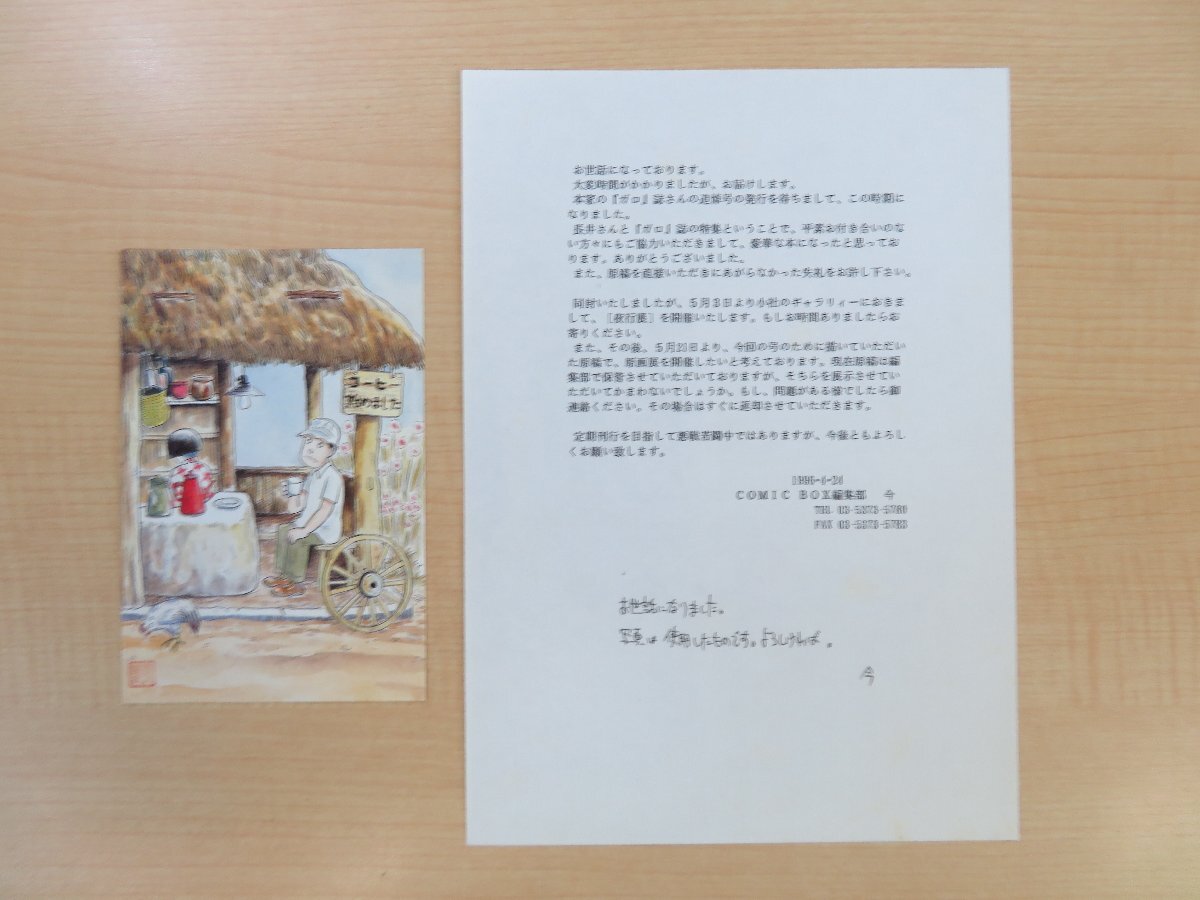 コーヒー
始めました
お世話になっております。
大変時間がかかりましたが、お届けします。
本家の『ガロ』誌さんの追悼号の発行を待ちまして、この時期に
なりました。
長井さんと『ガロ』誌の特集ということで、平素お付き合いのな
い方々にもご協力いただきまして、豪華な本になったと思ってお
ります。ありがとうございました。
また、原稿を直接いただきにあがらなかった失礼をお許し下さい。
同封いたしましたが、5月3日より小社のギャラリィーにおきま
して、［夜行展］を開催いたします。もしお時間ありましたらお
寄りください。
また、その後、5月21日より、今回の号のために描いていただい
た原稿で、原画展を開催したいと考えております。現在原稿は編
集部で保管させていただいておりますが、そちらを展示させてい
ただいてかまわないでしょうか。もし、問題がある様でしたら御
連絡ください。その場合はすぐに返却させていただきます。
定期刊行を目指して悪戦苦闘中ではありますが、今後ともよろし
くお願い致します。
1996-4-24
COMIC BOX編集部 今
TEL 03-5373-5760
FAX 03-5373-5763
お世話になりました。
写真は使用したものです。よろしければ。
今